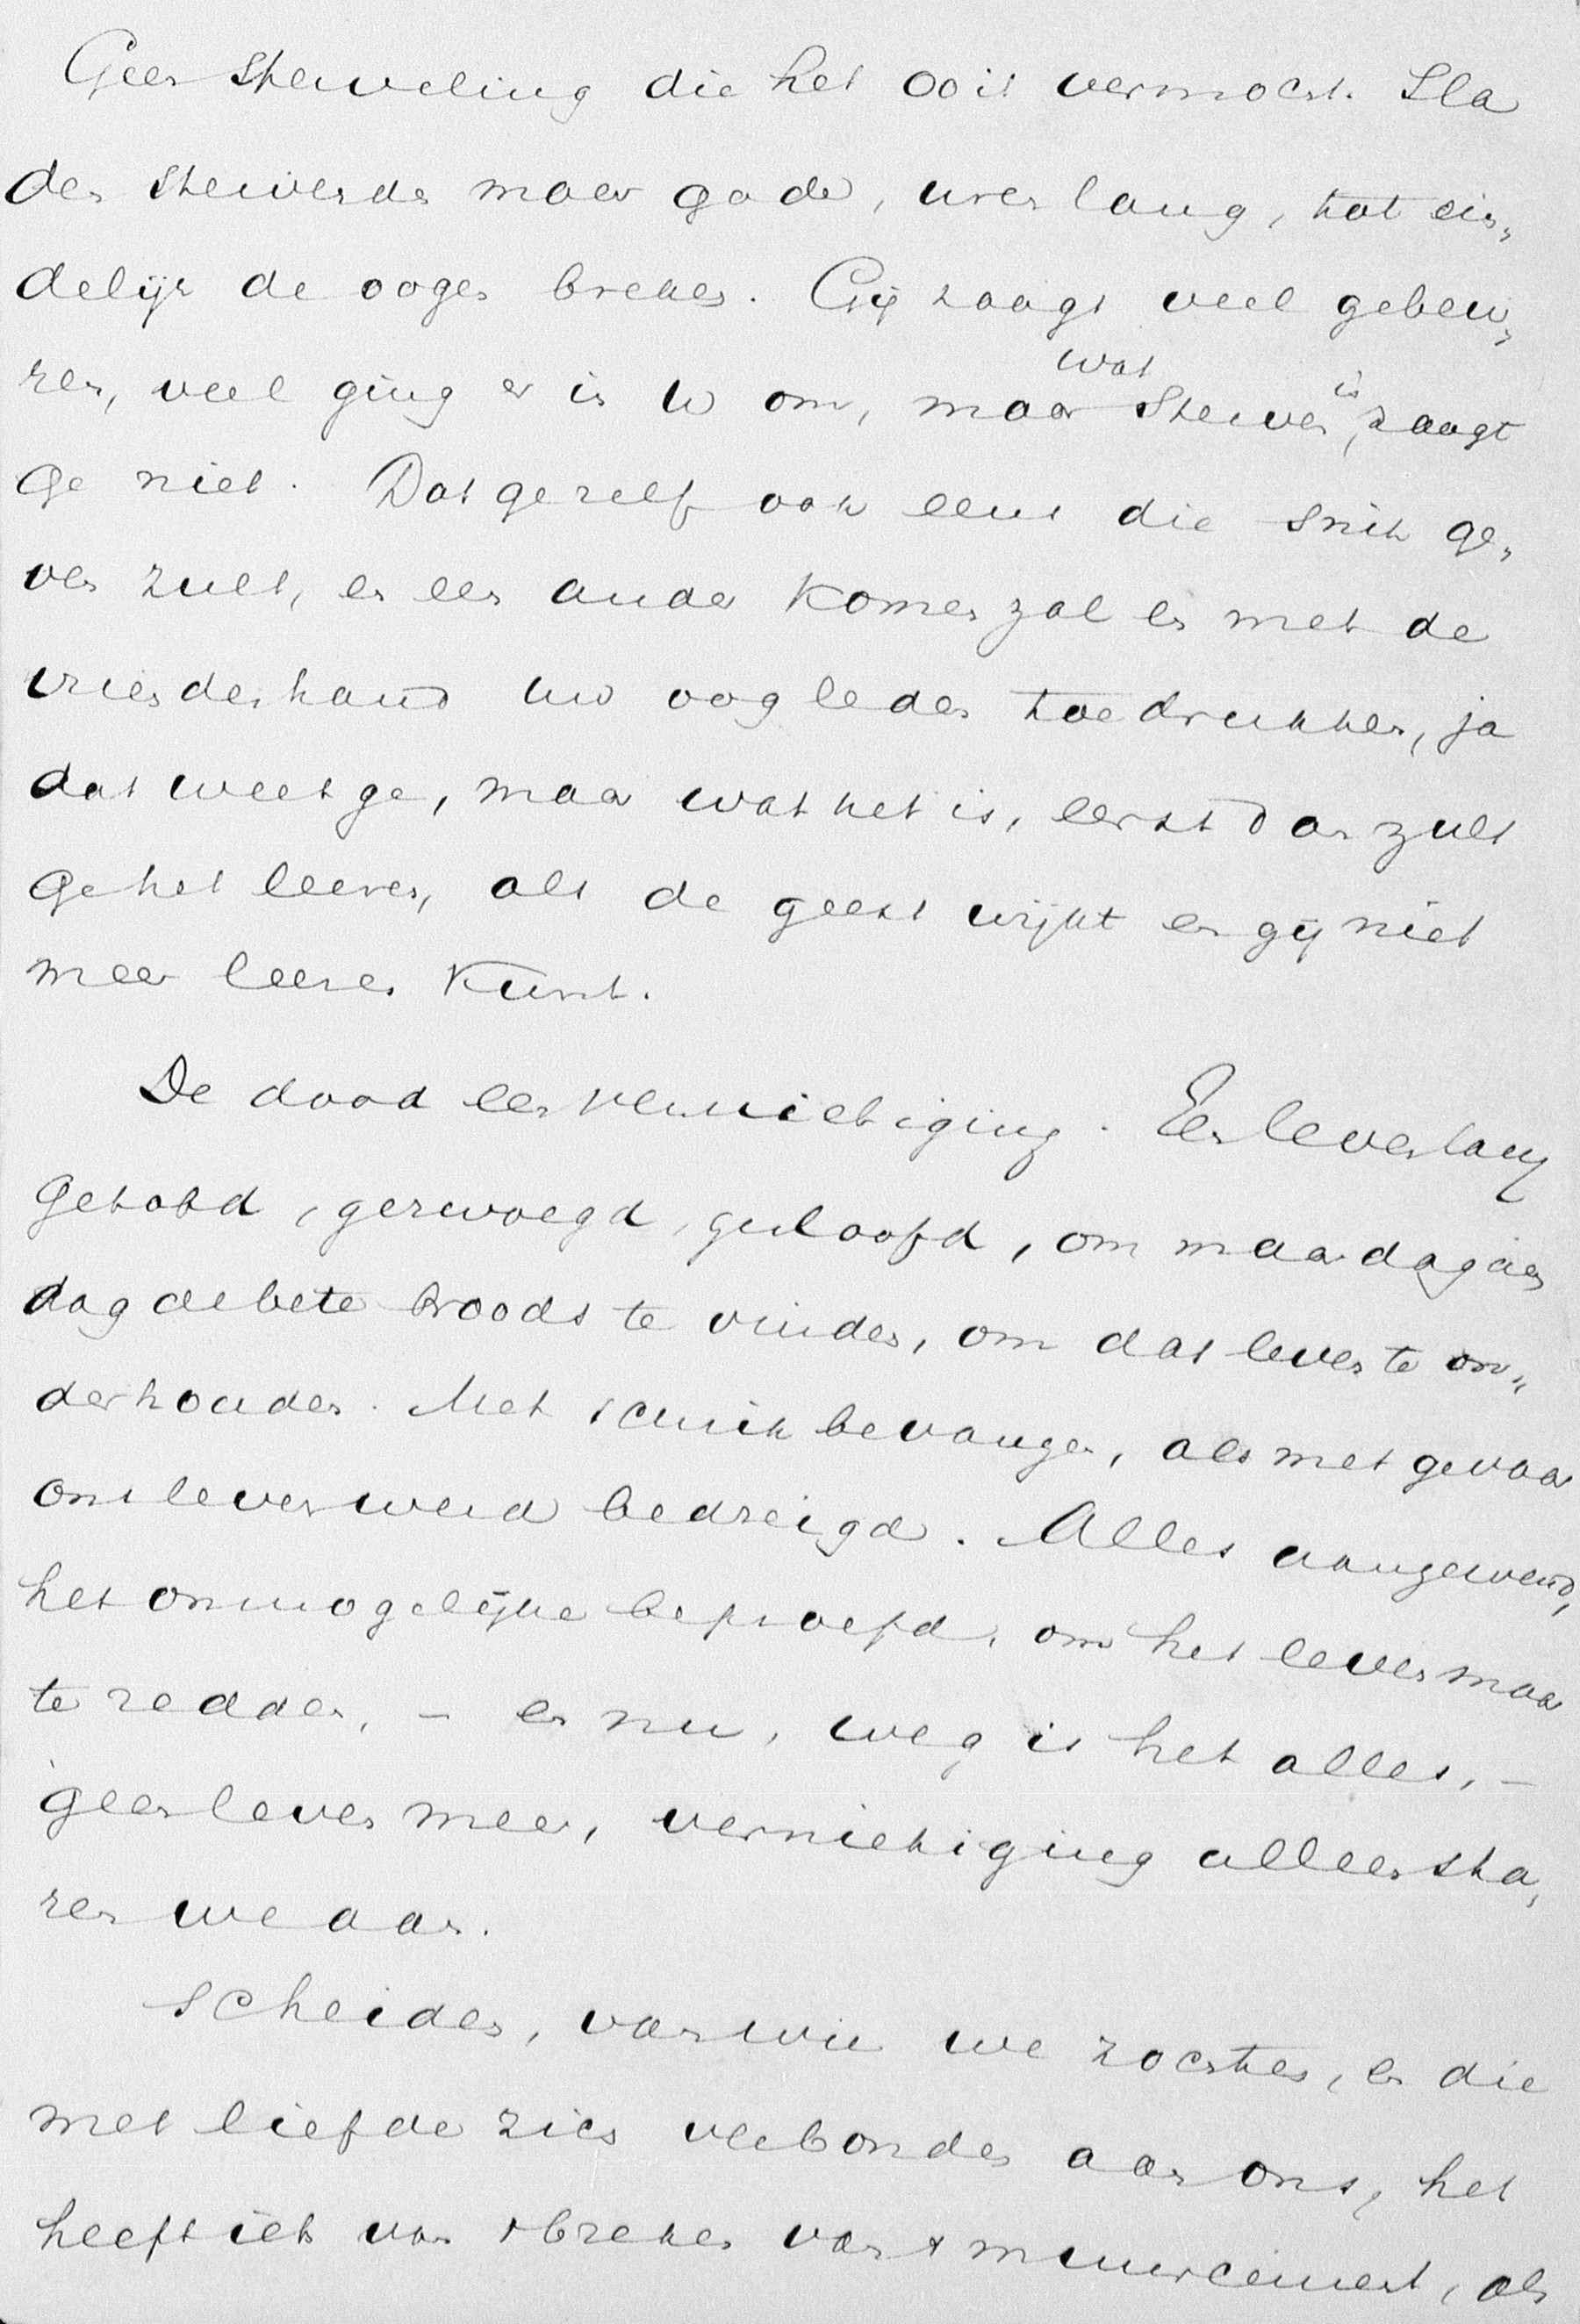 Geen sterveling die het ooit vermocht. Sla
den stervende maar gade, uren lang, tot ein„
delijk de oogen breken. Gij zaagt veel gebeu„
ren, veel ging er in U om, maar wat sterven is, zaagt
ge niet. Dat ge zelf ook eens die snik ge„
ven zult, en een ander komen zal en met de
vriendenhand uw oogleden toedrukken, ja
dat weet ge, maar wat het is, eerst dan zult
ge het leeren, als de geest wijkt en gij niet
meer leeren kunt.
De dood een vernietiging. Een leven lang
getobd, gezwoegd, gesloofd, om maar dag aan
dag de bete broods te vinden, om dat leven te on„
derhouden. Met schrik bevangen, als met gevaar
ons leven werd bedreigd. Alles aangewend,
het onmogelijke beproefd, om het leven maar
te redden, – en nu, weg is het alles, –
geen leven meer, vernietiging alleen sta„
ren we aan.
Scheiden, van wie we zochten, en die
met liefde zich verbonden aan ons, het
heeft iets van 't breken van 't muurcement, als